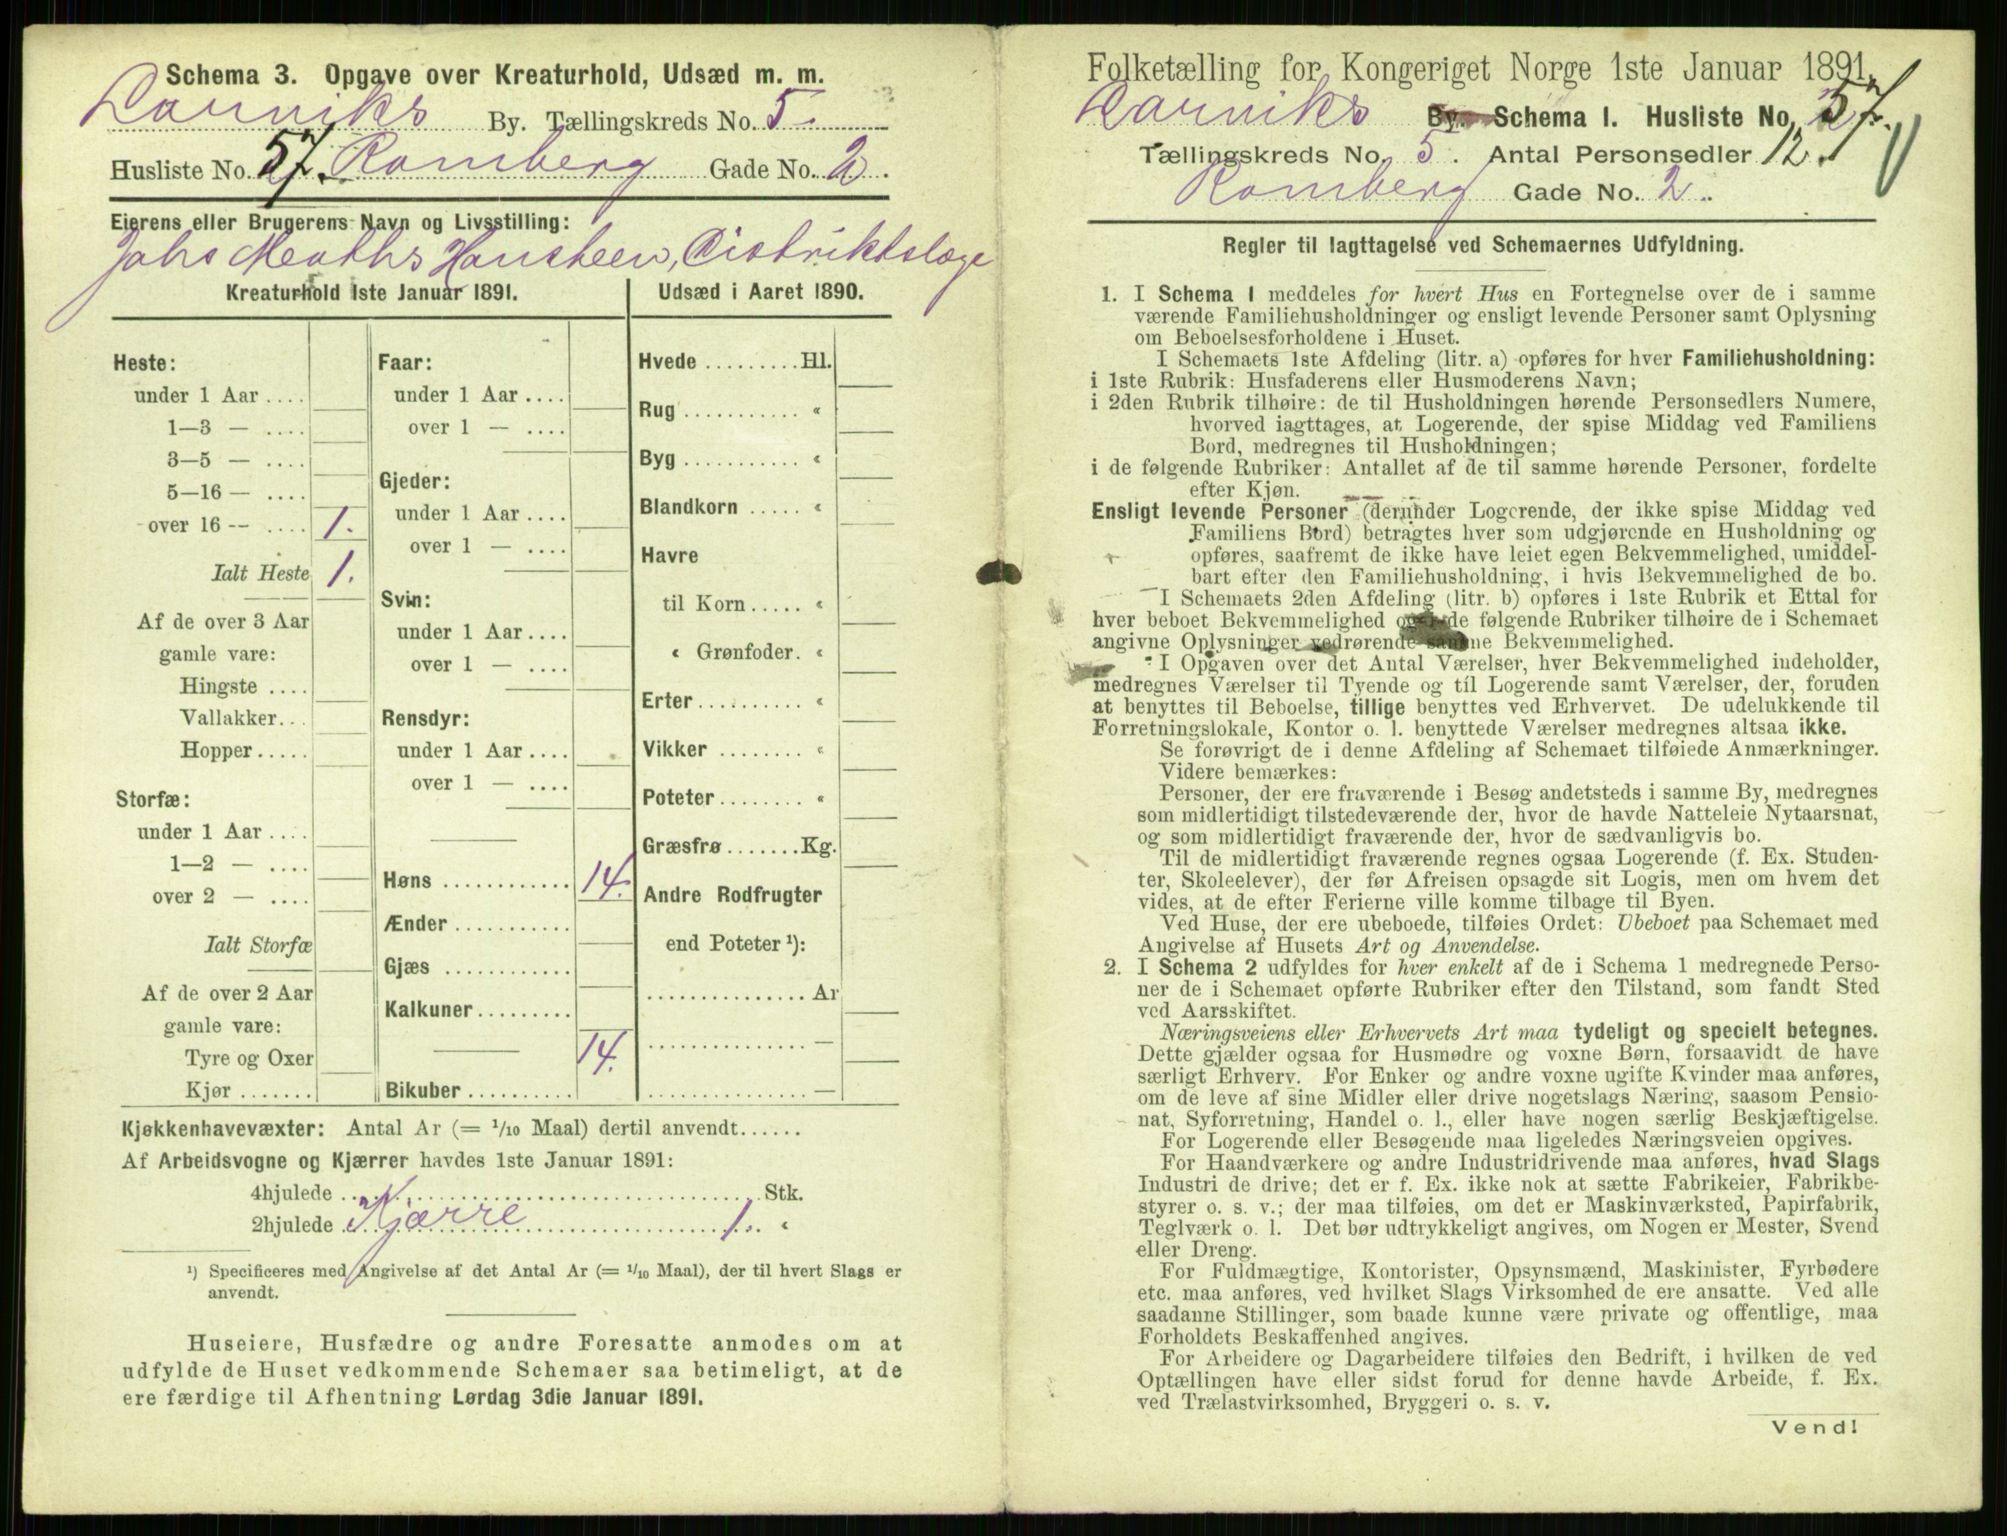 Schema 3. Opgave over Kreaturhold, Udsæd m. m.
Larviks By. Tællingskreds No. 5.
Husliste No. 57. Romberg Gade No. 2.
Eierens eller Brugerens Navn og Livsstilling:
Johs Hansteen, Distriktslæge
Kreaturhold 1ste Januar 1891.
Heste:
under 1 Aar ....
1—3 — ....
3—5 — ....
5—16 — ....
over 16 — .... 1.
Ialt Heste 1.
Af de over 3 Aar
gamle vare:
Hingste ....
Vallakker...
Hopper.....
Storfæ:
under 1 Aar ....
1—2 — ....
over 2 — ....
Ialt Storfæ
Af de over 2 Aar
gamle vare:
Tyre og Oxer
Kjør .......
Faar:
under 1 Aar ....
over 1 — ....
Gjeder:
under 1 Aar ....
over 1 — ....
Svin:
under 1 Aar ....
over 1 — ....
Rensdyr:
under 1 Aar ....
over 1 — ....
Høns ............ 14.
Ænder ...........
Gjæs ............
Kalkuner.........
14.
Bikuber ..........
Udsæd i Aaret 1890.
Hvede .........Hl.
Rug ........... «
Byg ........... «
Blandkorn ..... «
Havre
til Korn ..... «
« Grønfoder. «
Erter.......... «
Vikker ........ «
Poteter........ «
Græsfrø.......Kg.
Andre Rodfrugter
end Poteter ¹):
............... Ar
............... —
............... —
Kjøkkenhavevæxter: Antal Ar (= 1/10 Maal) dertil anvendt......
Af Arbeidsvogne og Kjærrer havdes 1ste Januar 1891:
4hjulede ........ Stk.
2hjulede Kjærre 1. «
¹) Specificeres med Angivelse af det Antal Ar (= 1/10 Maal), der til hvert Slags er
anvendt.
Huseiere, Husfædre og andre Foresatte anmodes om at
udfylde de Huset vedkommende Schemaer saa betimeligt, at de
ere færdige til Afhentning Lørdag 3die Januar 1891.
Folketælling for Kongeriget Norge 1ste Januar 1891.
Larviks By. Schema 1. Husliste No. 57.
Tællingskreds No. 5. Antal Personsedler 12.
Romberg Gade No. 2.
Regler til Iagttagelse ved Schemaernes Udfyldning.
1. I Schema 1 meddeles for hvert Hus en Fortegnelse over de i samme
værende Familiehusholdninger og ensligt levende Personer samt Oplysning
om Beboelsesforholdene i Huset.
I Schemaets 1ste Afdeling (litr. a) opføres for hver Familiehusholdning:
i 1ste Rubrik: Husfaderens eller Husmoderens Navn;
i 2den Rubrik tilhøire: de til Husholdningen hørende Personsedlers Numere,
hvorved iagttages, at Logerende, der spise Middag ved Familiens
Bord, medregnes til Husholdningen;
i de følgende Rubriker: Antallet af de til samme hørende Personer, fordelte
efter Kjøn.
Ensligt levende Personer (derunder Logerende, der ikke spise Middag ved
Familiens Bord) betragtes hver som udgjørende en Husholdning og
opføres, saafremt de ikke have leiet egen Bekvemmelighed, umiddel-
bart efter den Familiehusholdning, i hvis Bekvemmelighed de bo.
I Schemaets 2den Afdeling (litr. b) opføres i 1ste Rubrik et Ettal for
hver beboet Bekvemmelighed og i de følgende Rubriker tilhøire de i Schemaet
angivne Oplysninger vedrørende samme Bekvemmelighed.
I Opgaven over det Antal Værelser, hver Bekvemmelighed indeholder,
medregnes Værelser til Tyende og til Logerende samt Værelser, der, foruden
at benyttes til Beboelse, tillige benyttes ved Erhvervet. De udelukkende til
Forretningslokale, Kontor o. l. benyttede Værelser medregnes altsaa ikke.
Se forøvrigt de i denne Afdeling af Schemaet tilføiede Anmærkninger.
Videre bemærkes:
Personer, der ere fraværende i Besøg andetsteds i samme By, medregnes
som midlertidigt tilstedeværende der, hvor de havde Natteleie Nytaarsnat,
og som midlertidigt fraværende der, hvor de sædvanligvis bo.
Til de midlertidigt fraværende regnes ogsaa Logerende (f. Ex. Studen-
ter, Skoleelever), der før Afreisen opsagde sit Logis, men om hvem det
vides, at de efter Ferierne ville komme tilbage til Byen.
Ved Huse, der ere ubeboede, tilføies Ordet: Ubeboet paa Schemaet med
Angivelse af Husets Art og Anvendelse.
2. I Schema 2 udfyldes for hver enkelt af de i Schema 1 medregnede Perso-
ner de i Schemaet opførte Rubriker efter den Tilstand, som fandt Sted
ved Aarsskiftet.
Næringsveiens eller Erhvervets Art maa tydeligt og specielt betegnes.
Dette gjælder ogsaa for Husmødre og voxne Børn, forsaavidt de have
særligt Erhverv. For Enker og andre voxne ugifte Kvinder maa anføres,
om de leve af sine Midler eller drive nogetslags Næring, saasom Pensio-
nat, Syforretning, Handel o. l., eller have nogen særlig Beskjæftigelse.
For Logerende eller Besøgende maa ligeledes Næringsveien opgives.
For Haandværkere og andre Industridrivende maa anføres, hvad Slags
Industri de drive; det er f. Ex. ikke nok at sætte Fabrikeier, Fabrikbe-
styrer o. s. v.; der maa tilføies, om det er Maskinværksted, Papirfabrik,
Teglværk o. l. Det bør udtrykkeligt angives, om Nogen er Mester, Svend
eller Dreng.
For Fuldmægtige, Kontorister, Opsynsmænd, Maskinister, Fyrbødere
etc. maa anføres, ved hvilket Slags Virksomhed de ere ansatte. Ved alle
saadanne Stillinger, som baade kunne være private og offentlige, maa
Forholdets Beskaffenhed angives.
For Arbeidere og Dagarbeidere tilføies den Bedrift, i hvilken de ved
Optællingen have eller sidst forud for denne havde Arbeide, f. Ex.
ved Trælastvirksomhed, Bryggeri o. s. v.
Vend!